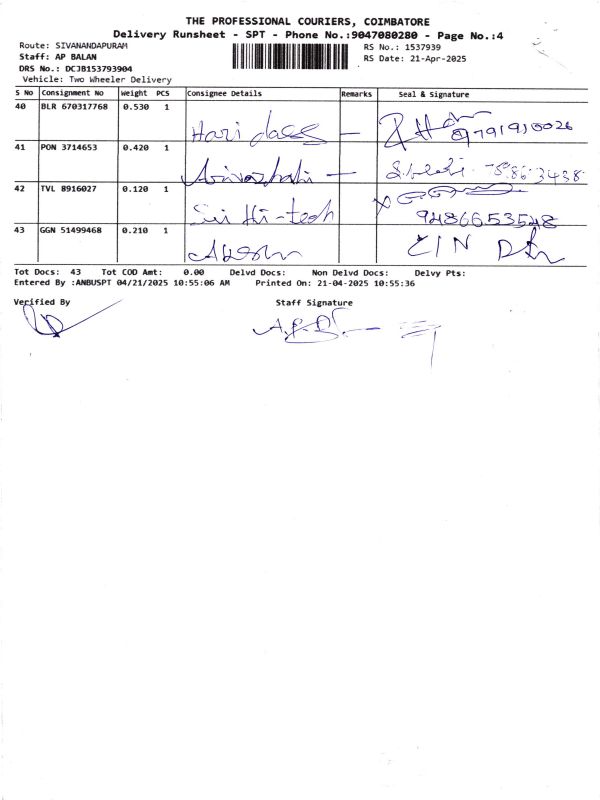 THE PROFESSIONAL COURIERS, COIMBATORE
Delivery Runsheet - SPT - Phone No.:9047080280 - Page No.:4
Route: SIVANANDAPURAM
RS No.: 1537939
Staff: AP BALAN
RS Date: 21-Apr-2025
DRS No.: DCJB153793904
Vehicle: Two Wheeler Delivery
S No Consignment No Weight PCS Consignee Details Remarks Seal & Signature
40 BLR 670317768 0.530 1
Hari dass — 9791910026
41 PON 3714653 0.420 1
42 TVL 8916027 0.120 1
Sri Hi-tech 9486653548
43 GGN 51499468 0.210 1
Tot Docs: 43 Tot COD Amt: 0.00 Delvd Docs: Non Delvd Docs: Delvy Pts:
Entered By :ANBUSPT 04/21/2025 10:55:06 AM Printed On: 21-04-2025 10:55:36
Verified By Staff Signature